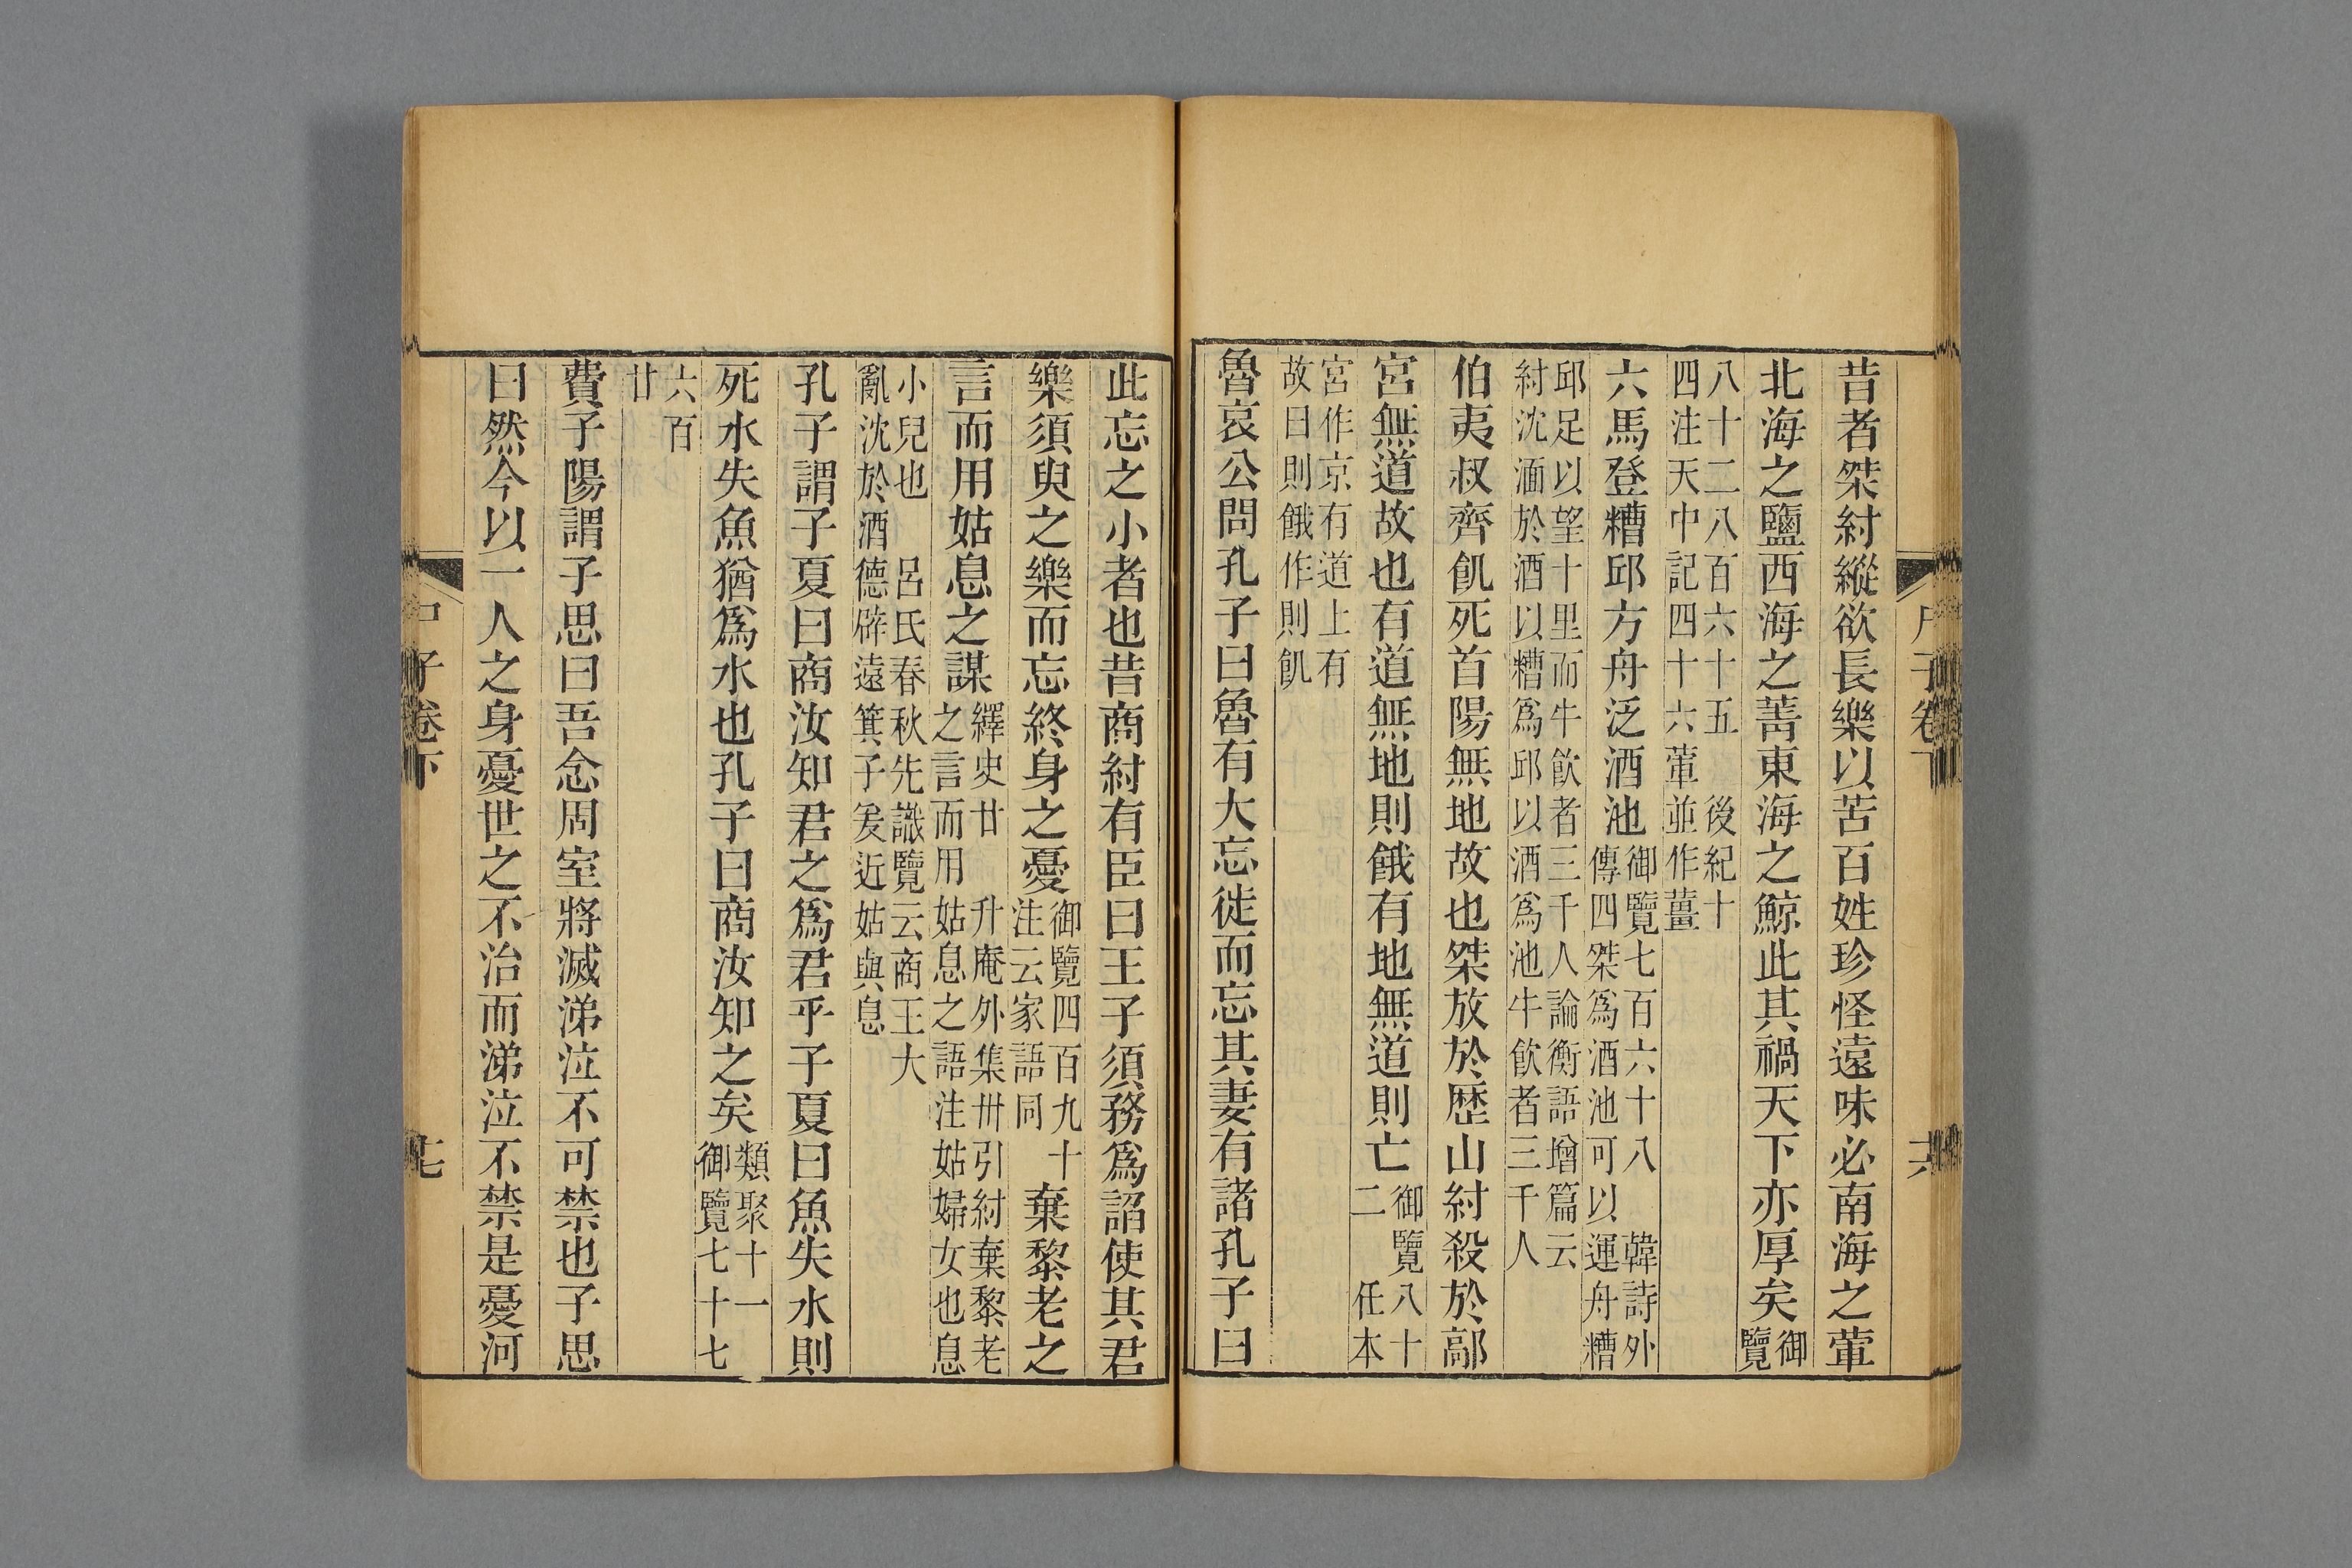 昔者桀紂縱欲長樂以苦百姓珍怪遠味必南海之葷
北海之鹽西海之菁東海之鯨此其禍天下亦厚矣御覽
八十二八百六十五　後紀十四注天中記四十六葷並作薑
六馬登糟邱方舟泛酒池御覽七百六十八　韓詩外傳四桀爲酒池可以運舟糟
邱足以望十里而牛飲者三千人論衡語增篇云紂沈湎於酒以糟爲邱以酒爲池牛飲者三千人
伯夷叔齊飢死首陽無地故也桀放於歷山紂殺於鄗
宮無道故也有道無地則餓有地無道則亡御覽八十二　任本
宮作京有道上有故曰則餓作則飢
魯哀公問孔子曰魯有大忘徙而忘其妻有諸孔子曰
此忘之小者也昔商紂有臣曰王子須務爲諂使其君
樂須臾之樂而忘終身之憂御覽四百九十注云家語同棄黎老之
言而用姑息之謀繹史廿　升庵外集卅引紂棄黎老之言而用姑息之語注姑婦女也息
小兒也　呂氏春秋先識覽云商王大亂沈於酒德辟遠箕子爰近姑與息
孔子謂子夏曰商汝知君之爲君乎子夏曰魚失水則
死水失魚猶爲水也孔子曰商汝知之矣類聚十一御覽七十七
六百廿
費子陽謂子思曰吾念周室將滅涕泣不可禁也子思
曰然今以一人之身憂世之不治而涕泣不禁是憂河
子卷下